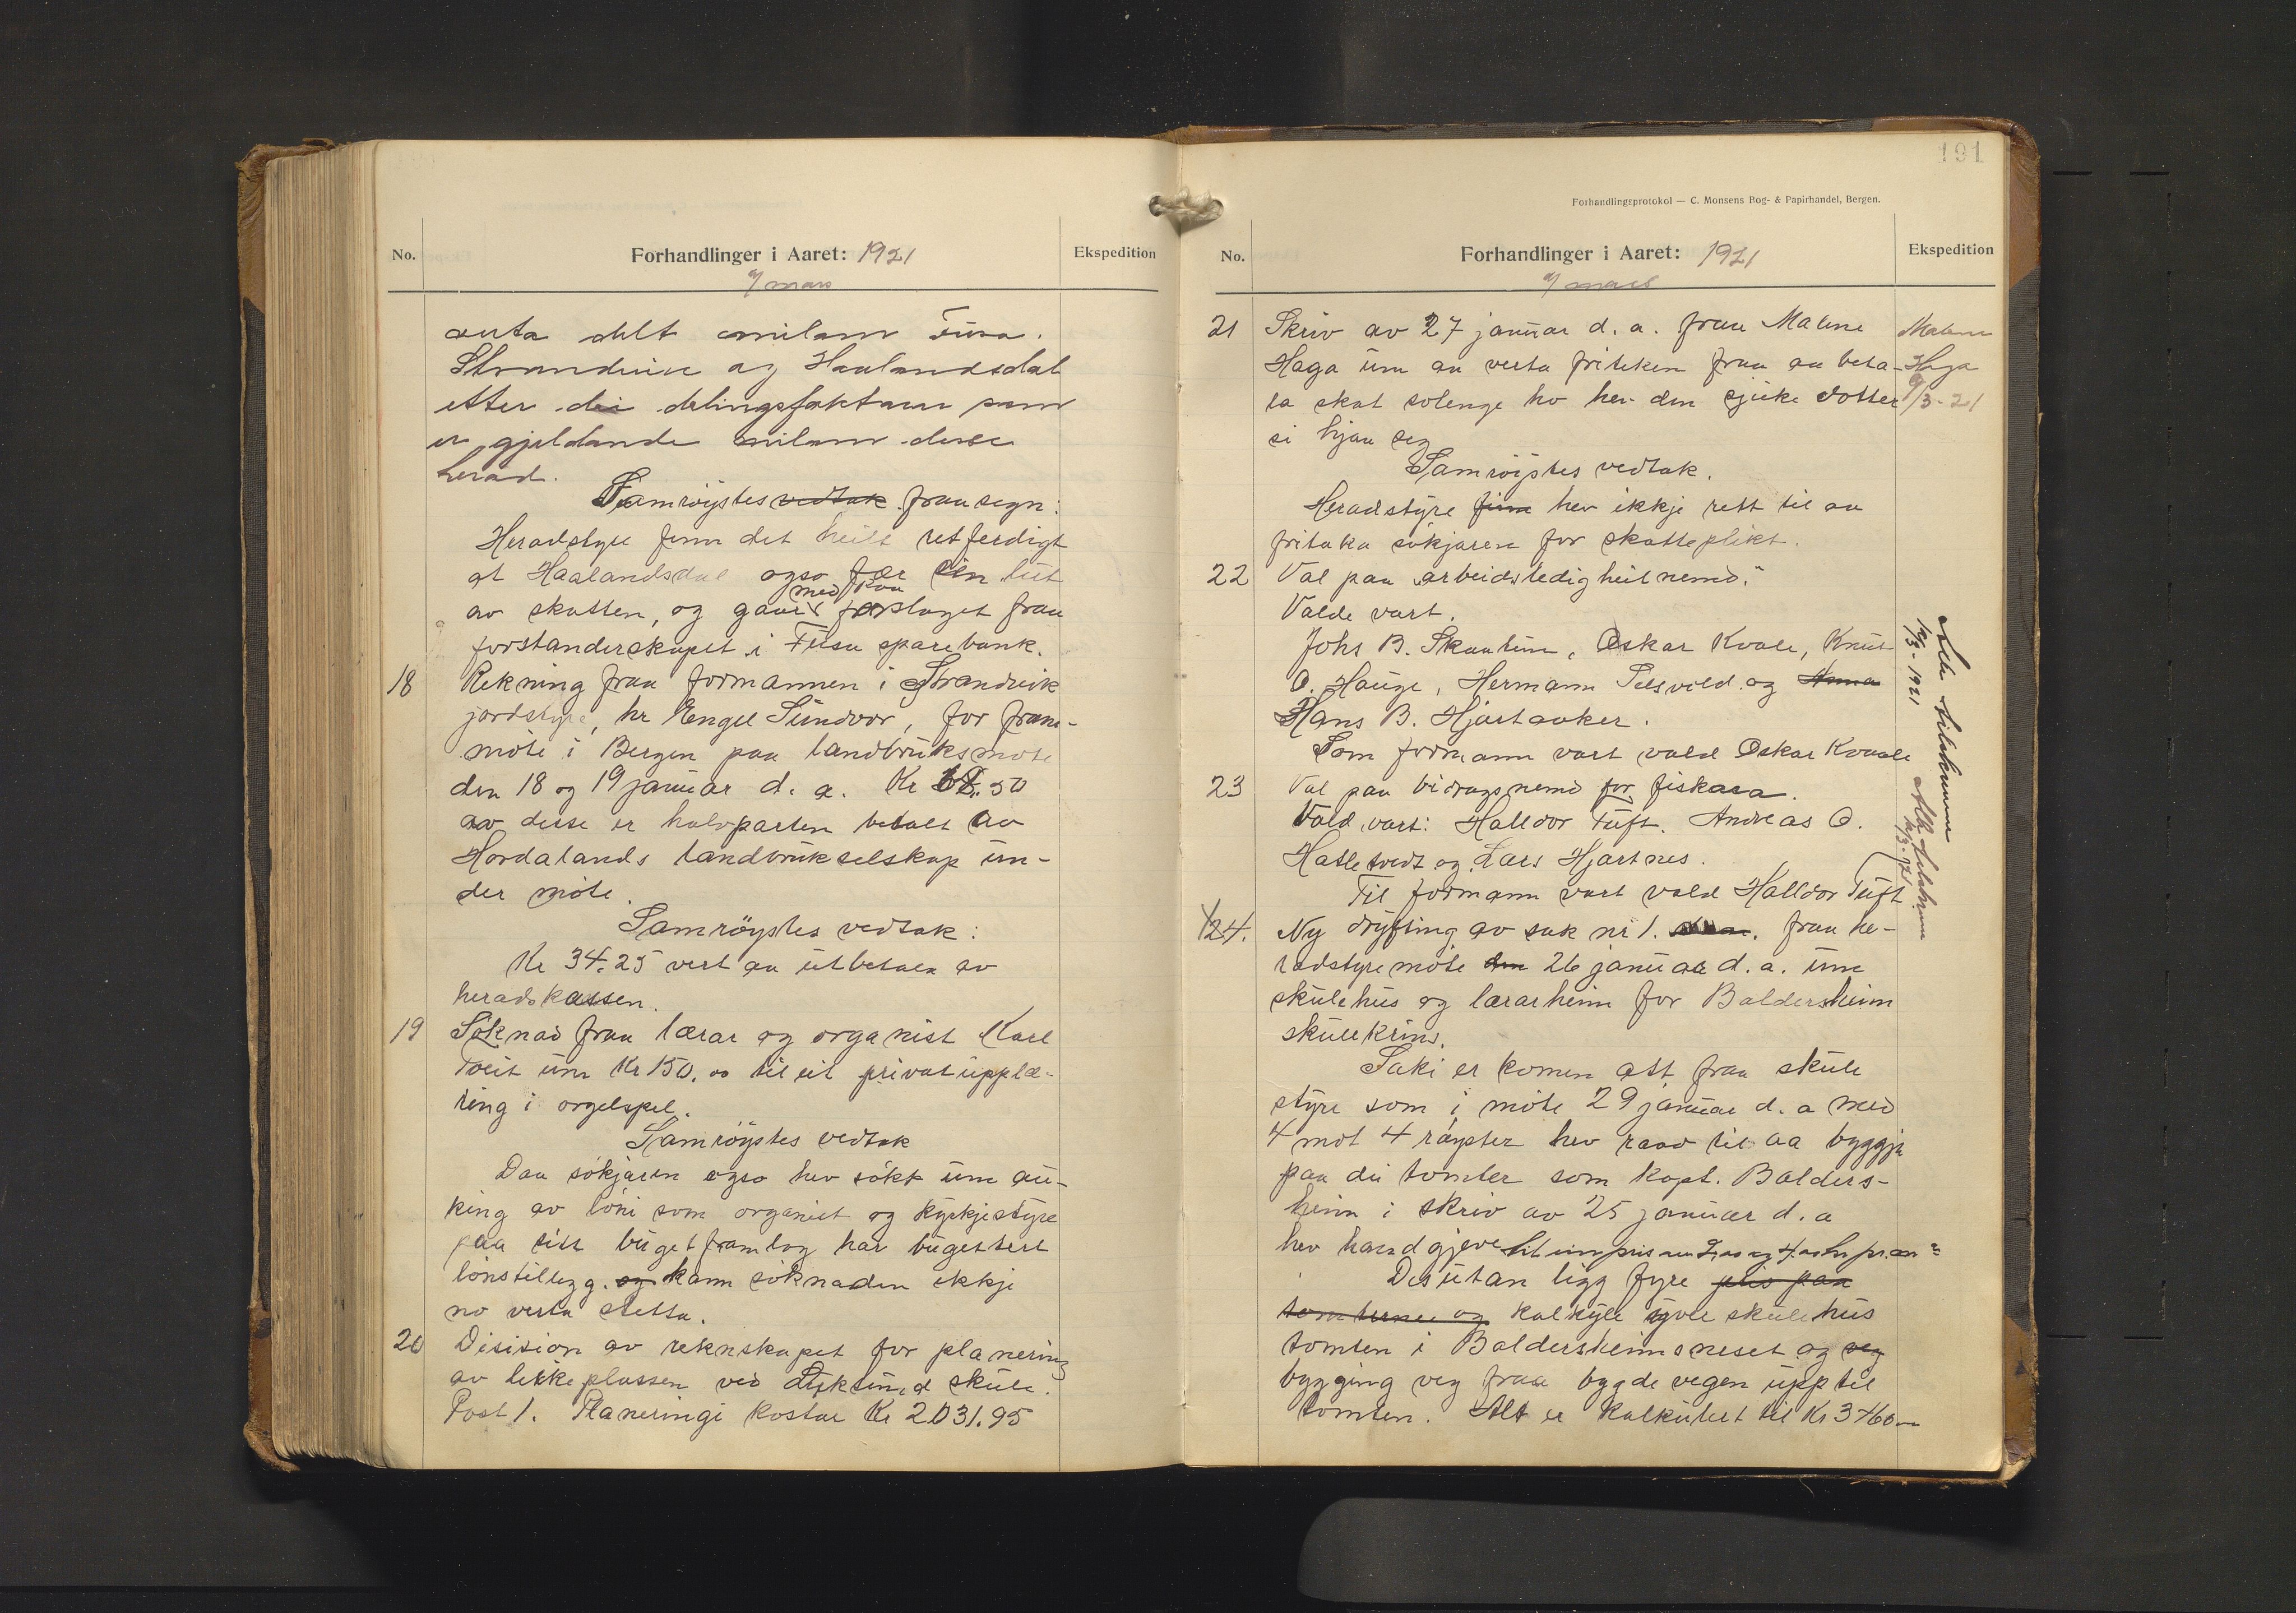 No.
Forhandlinger i Aaret: 1921
Ekspedition
9/ mars
verta delt millom Fusa.
Strandvik og Haalandsdal
etter dei delingsfaktorar som
er gjeldande millom desse
herad.
Samrøystes vedtak fraasegn:
Heradstyre finn det heilt retferdigt
at Haalandsdal ogso fær sin lut
med paa
av skatten, og gaar forslaget fraa
forstanderskapet i Fusa sparebank.
18 Rekning fraa formannen i Strandvik
jordstyre, hr Engel Sundvor, for fram-
møte i Bergen paa landbruksmøte
den 18 og 19 januar d. a. Kr 68.50
av desse er halvparten betalt av
Hordalands landbrukselskap un-
der møte.
Samrøystes vedtak:
Kr 34.25 vert aa utbetala av
heradskassen.
19 Søknad fraa lærar og organist Karl
Tveit um Kr 150.00 til eit privat upplæ-
ring i orgelspel.
Samrøystes vedtak
Daa søkjaren ogso hev søkt um au-
king av løni som organist og kyrkjestyre
paa sitt bugetframlag har bugettert
lønstillegg. og kann søknaden ikkje
no verta stetta.
20 Desision av reknskapet for planering
av leikeplassen ved Lyksund skule.
Post 1. Planeringi kostar Kr 2031.95
191
Forhandlingsprotokol — C. Monsens Bog- & Papirhandel, Bergen.
No.
Forhandlinger i Aaret: 1921
Ekspedition
9/ mars
21 Skriv av 27 januar d. a. fraa Malene
Haga um aa verta friteken fraa aa beta-
la skat solenge ho hev den sjuke dotter
si hjaa seg
Malene
Haga
9/3-21
Samrøystes vedtak.
Heradstyre finn hev ikkje rett til aa
fritaka søkjaren for skatteplikt.
22 Val paa "arbeidsledigheitnemd."
Valde vart.
Johs B. Skaatun, Oskar Kvale, Knut
O. Hauge, Hermann Selsvold og
Hans B. Hjartaaker.
Som formann vart vald Oskar Kvaale
23 Val paa bidragsnemd for fiskara.
Vald vart: Halldor Tuft. Andreas O.
Hatletvedt og Lars Hjartnes.
Til formann vart vald Halldor Tuft
12/3-1921
24. Ny drøfting av sak nr 1. fraa he-
radstyremøte den 26 januar d. a. um
skulehus og lærarheim for Baldersheim
skulekrins.
Saki er komen att fraa skule
styre som i møte 29 januar d. a med
4 mot 4 røyster hev raad til aa byggja
paa dei tomter som kapt. Balders-
heim i skriv av 25 januar d. a
hev handgjeve til ein pris av
Desutan ligg fyre pris paa
tomterne og kalkyle yver skulehus
tomten i Baldersheimsneset og veg
bygging veg fraa bygdevegen upp til
tomten. Alt er kalkulert til Kr 3760